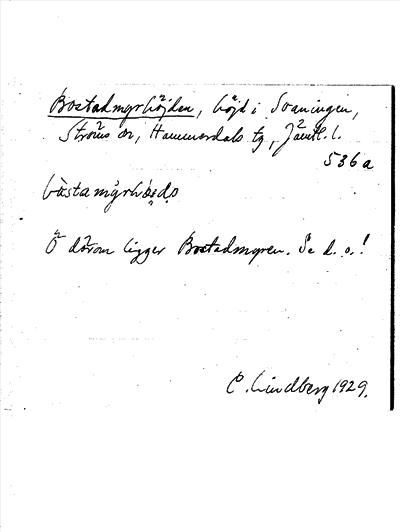 Bostadmyrhöjden, höjd i Svaningen,
Ströms sn, Hammerdals tg, Jämtl. l.
536a
Ö därom ligger Bostadmyren. Se d. o.!
C. Lindberg 1929.